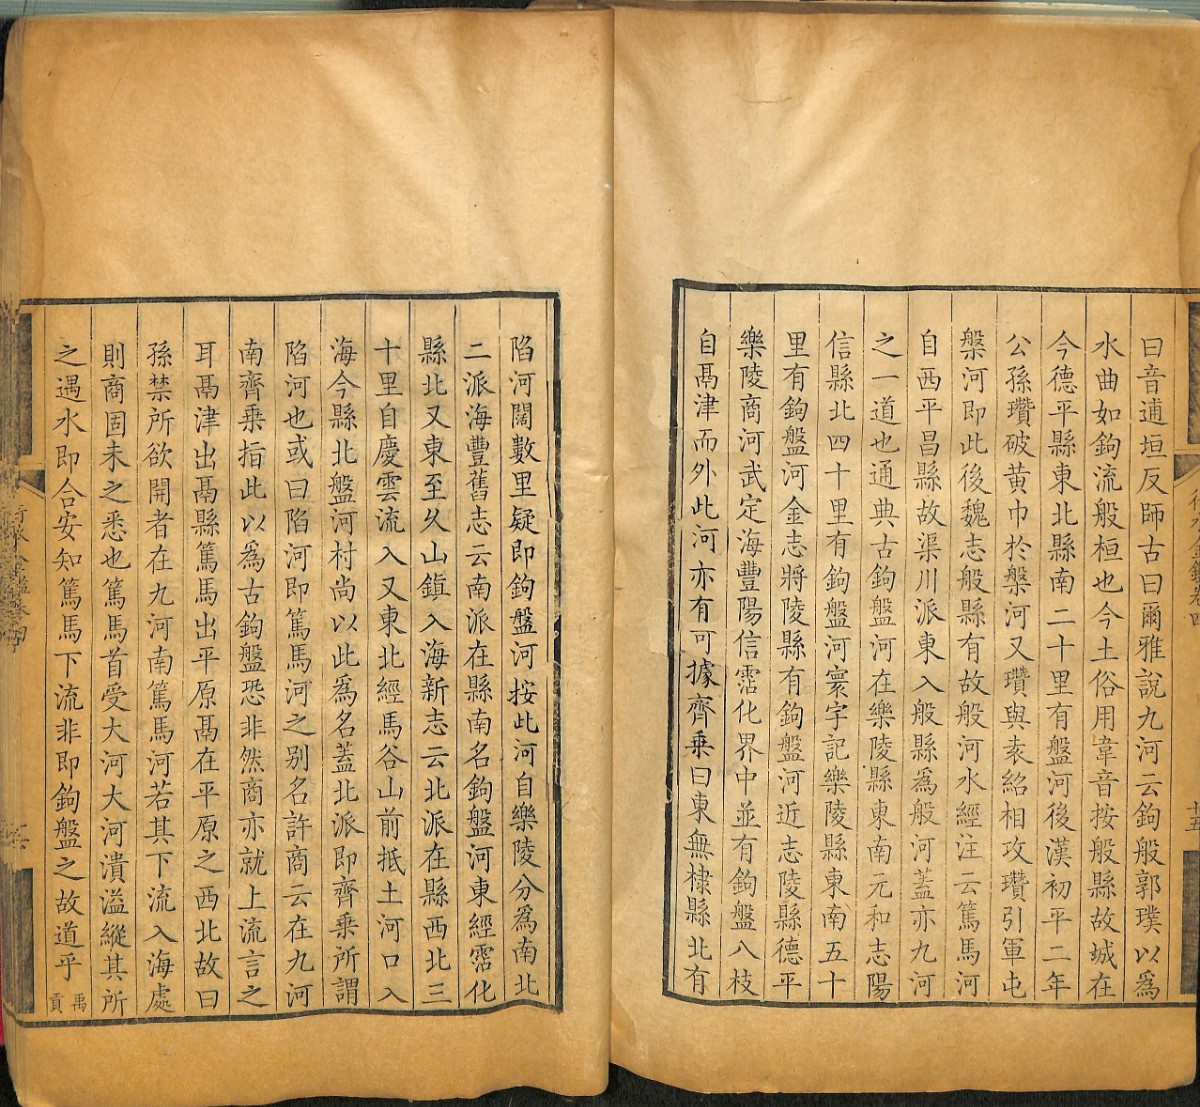 曰音逋垣反師古曰爾雅說九河云鉤般郭璞以爲
水曲如鉤流般桓也今土俗用韋音按般縣故城在
今德平縣東北縣南二十里有盤河後漢初平二年
公孫瓚破黃巾於槃河又瓚與袁紹相攻瓚引軍屯
槃河即此後魏志般縣有故般河水經注云篤馬河
自西平昌縣故渠川派東入般縣爲般河蓋亦九河
之一道也通典古鉤盤河在樂陵縣東南元和志陽
信縣北四十里有鉤盤河寰宇記樂陵縣東南五十
里有鉤盤河金志將陵縣有鉤盤河近志陵縣德平
樂陵商河武定海豐陽信霑化界中並有鉤盤八枝
自鬲津而外此河亦有可據齊乘曰東無棣縣北有
陷河闊數里疑即鉤盤河按此河自樂陵分爲南北
二派海豐舊志云南派在縣南名鉤盤河東經霑化
縣北又東至久山鎮入海新志云北派在縣西北三
十里自慶雲流入又東北經馬谷山前抵土河口入
海今縣北盤河村尚以此爲名蓋北派即齊乘所謂
陷河也或曰陷河即篤馬河之別名許商云在九河
南齊乘指此以爲古鉤盤恐非然商亦就上流言之
耳鬲津出鬲縣篤馬出平原鬲在平原之西北故曰
孫禁所欲開者在九河南篤馬河若其下流入海處
則商固未之悉也篤馬首受大河大河潰溢縱其所
之遇水即合安知篤馬下流非即鉤盤之故道乎禹貢